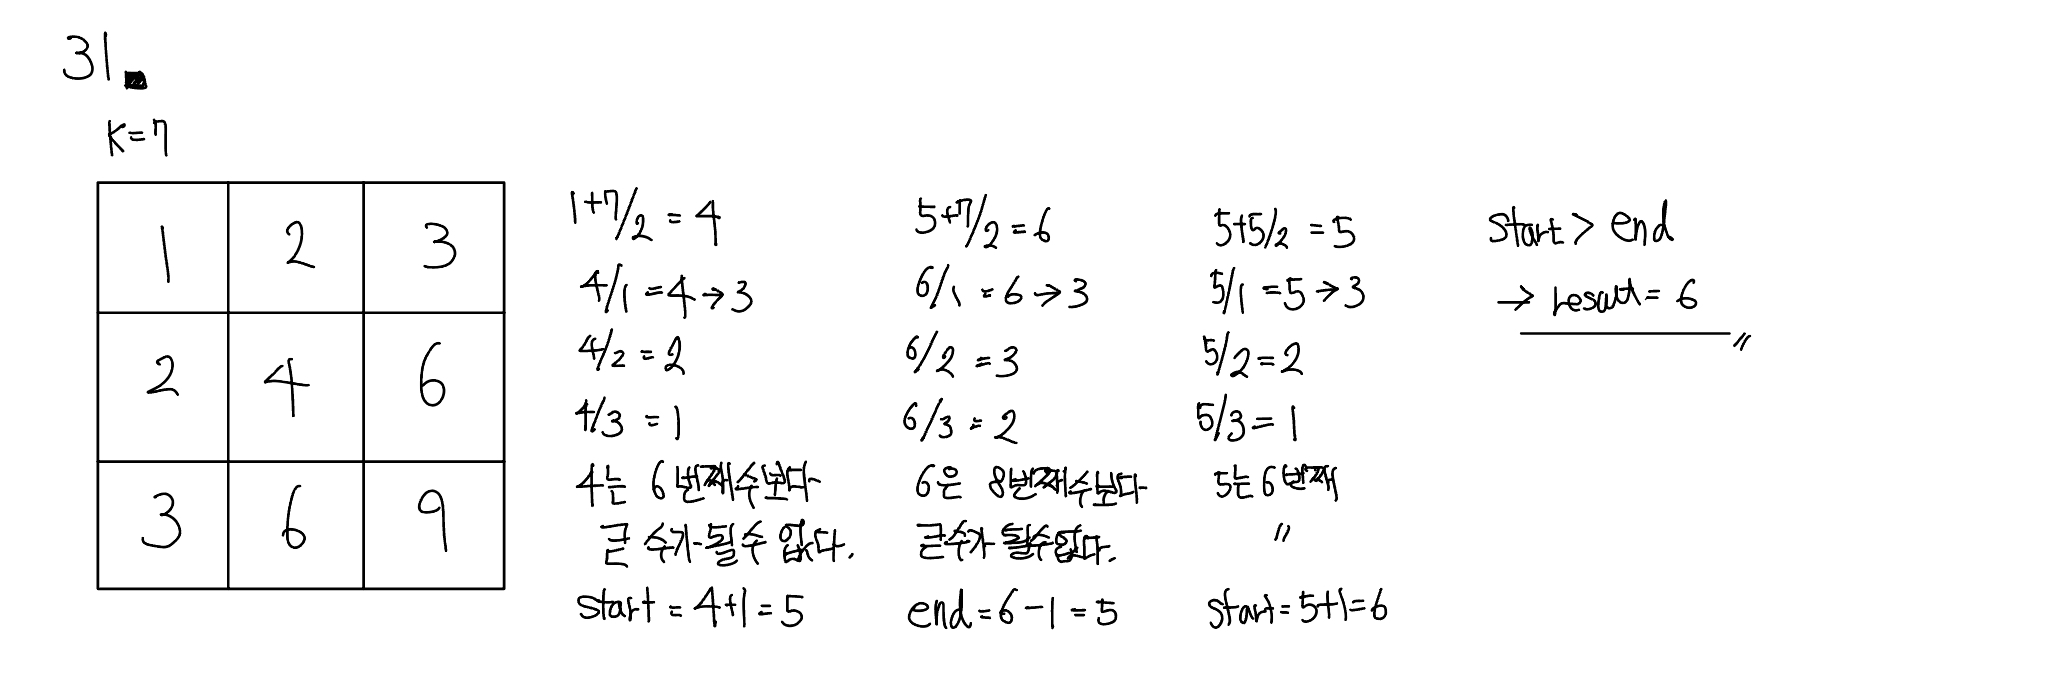 31.
K=7
1 2 3
2 4 6
3 6 9
1+7/2 = 4
4/1 = 4 → 3
4/2 = 2
4/3 = 1
4는 6번째수보다
큰 수가 될수 없다.
start = 4+1 = 5
5+7/2 = 6
6/1 = 6 → 3
6/2 = 3
6/3 = 2
6은 8번째수보다
큰수가 될수없다.
end = 6-1 = 5
5+5/2 = 5
5/1 = 5 → 3
5/2 = 2
5/3 = 1
5는 6번째
〃
start = 5+1 = 6
start > end
→ result = 6
〃